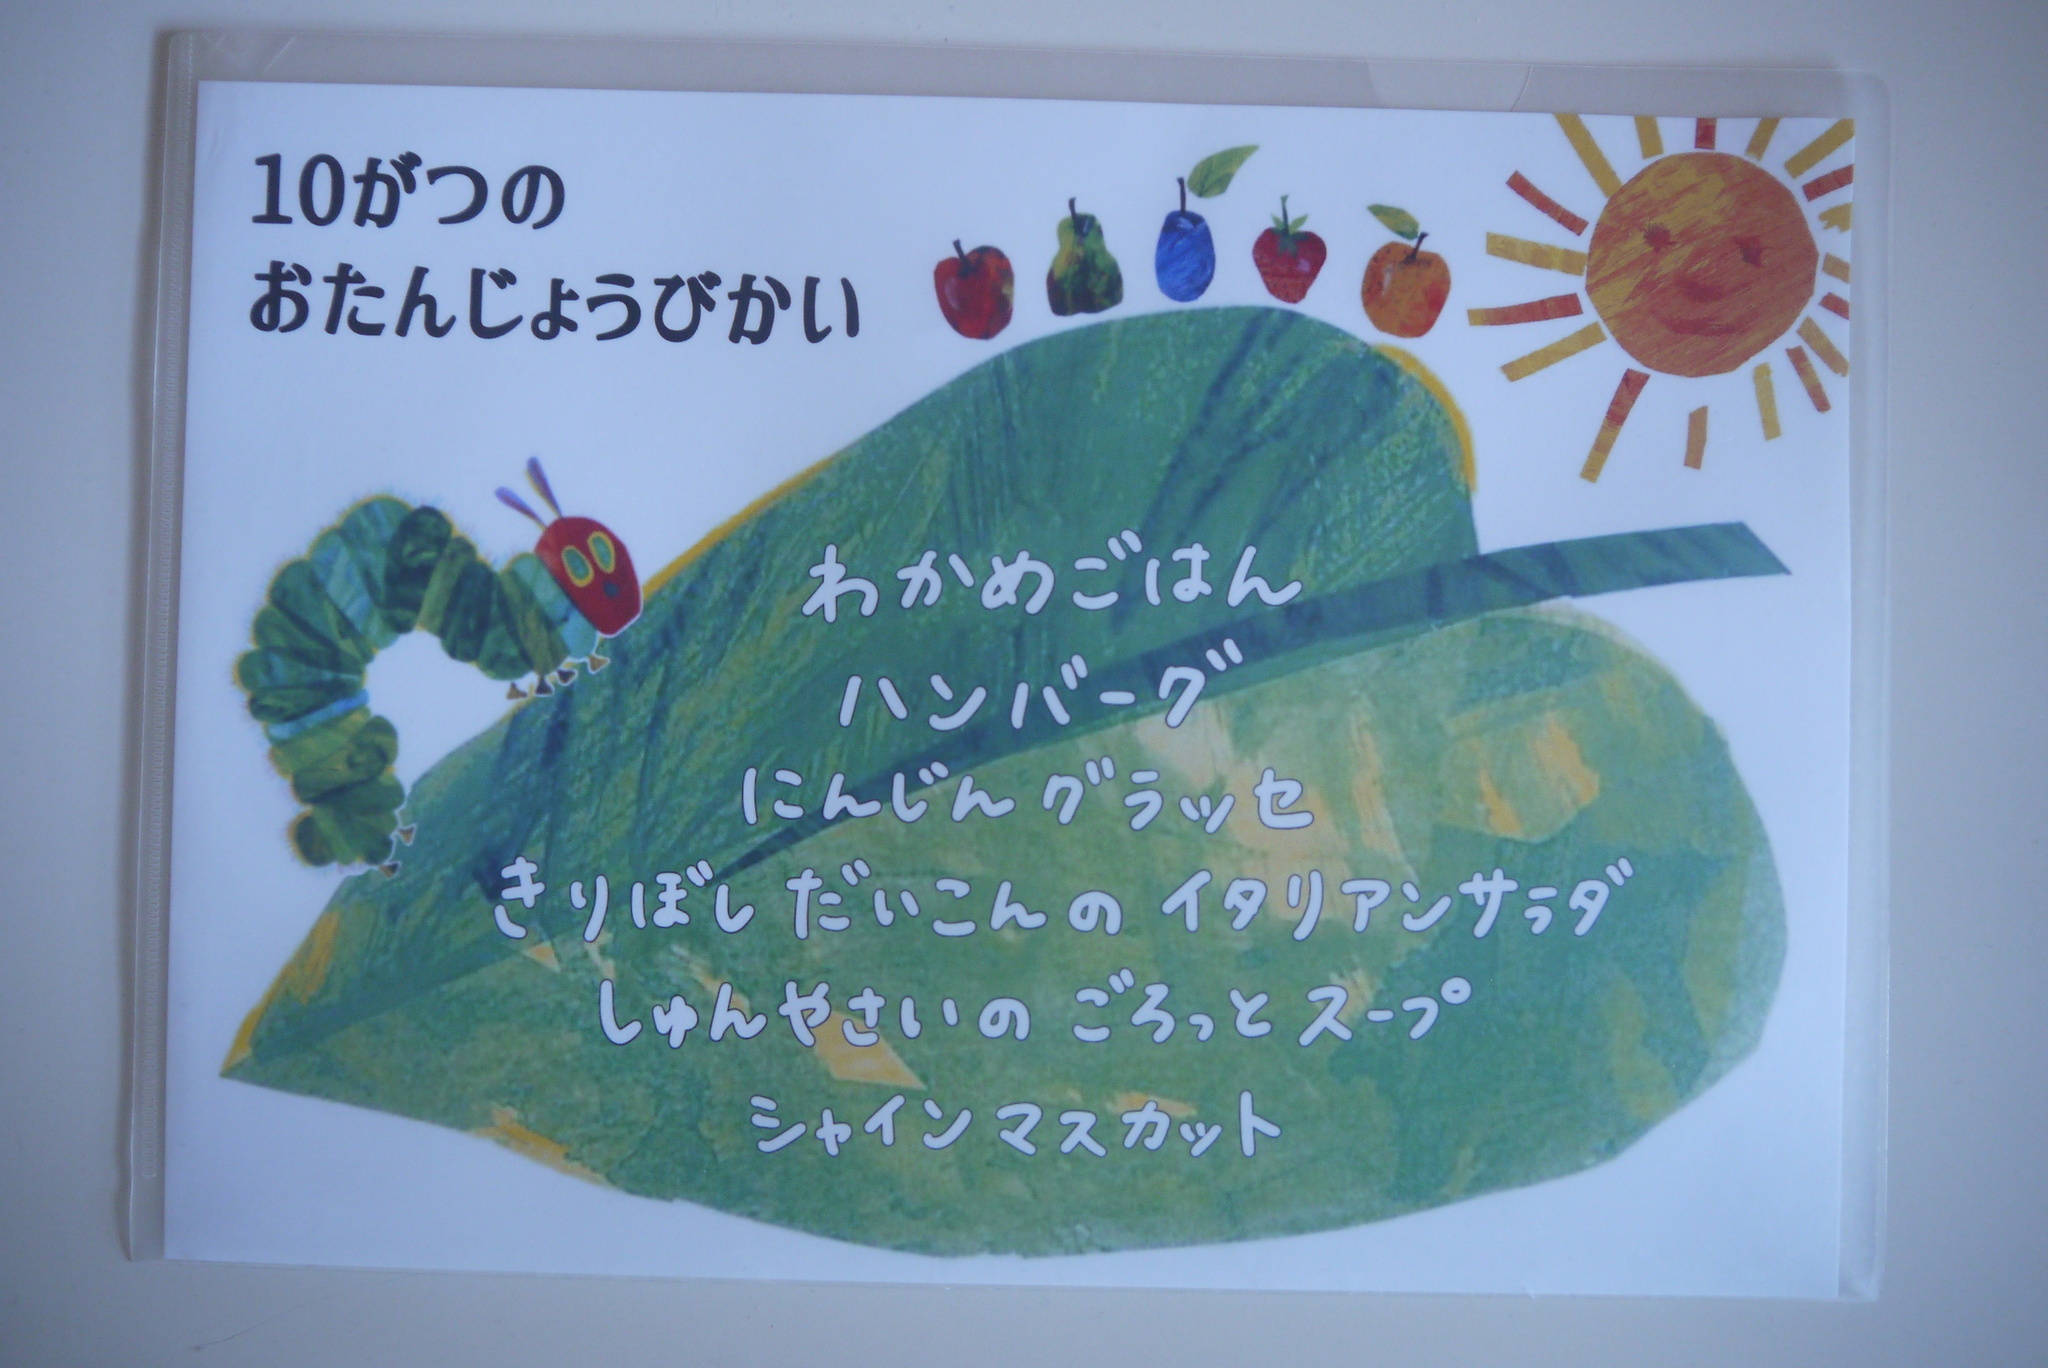 10がつの
おたんじょうびかい
わかめごはん
ハンバーグ
にんじん グラッセ
きりぼし だいこんの イタリアンサラダ
しゅんやさいの ごろっと スープ
シャイン マスカット